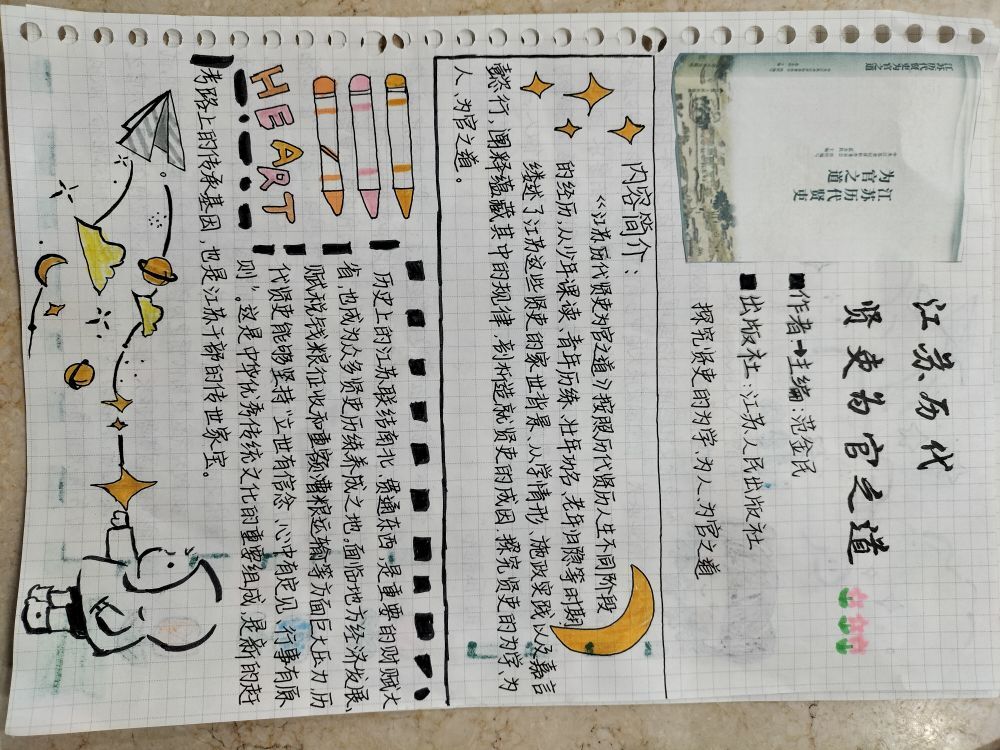 江苏历代贤吏
为官之道
江苏历代
贤吏为官之道
■作者→主编：范金民
■出版社：江苏人民出版社
探究贤吏的为学、为人、为官之道
内容简介：
《江苏历代贤吏为官之道》按照历代贤历人生不同阶段
的经历，从少年课读、青年历练、壮年功名、老年归隐等时期，
缕述了江苏这些贤吏的家世背景、从学情形、施政实践以及嘉言
懿行，阐释蕴藏其中的规律，剖析造就贤吏的成因，探究贤吏的为学、为
人、为官之道。
HEART
历史上的江苏联结南北，贯通东西，是重要的财赋大
省，也成为众多贤吏历练养成之地。面临地方经济发展、
赋税钱粮征收和重额漕粮运输等方面巨大压力，历
代贤吏能够坚持“立世有信念，心中有定见，行事有原
则”。这是中华优秀传统文化的重要组成，是新的赶
考路上的传承基因，也是江苏干部的传世家宝。